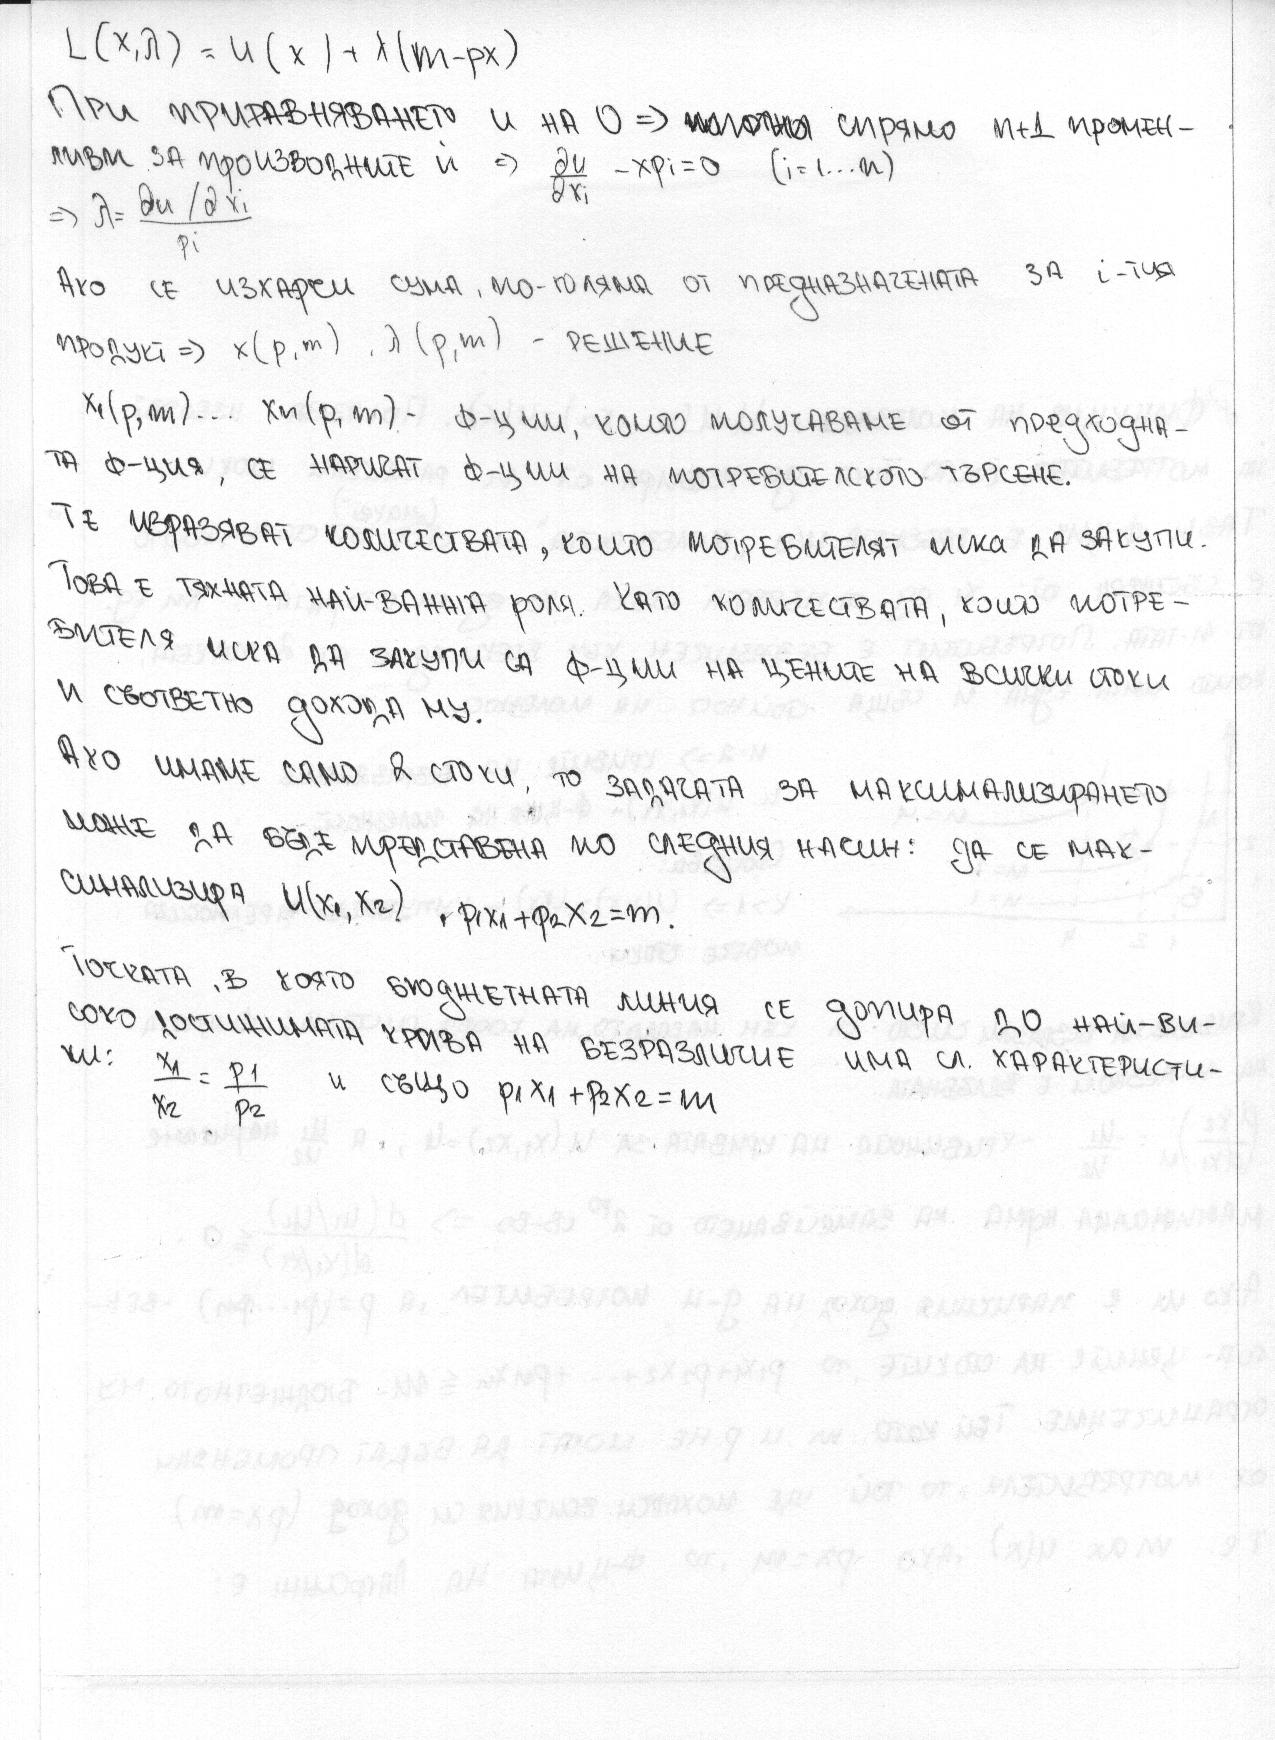 L(x,λ) = u(x) + λ(m-px)
При приравняването и на 0 => спрямо n+1 промен-
ливи за производните ѝ => ∂u/∂xi - λpi = 0 (i=1...n)
=> λ = (∂u/∂xi)/pi
Ако се изхарчи сума, по-голяма от предназначената за i-тия
продукт => x(p,m), λ(p,m) - решение
x1(p,m)... xn(p,m) - ф-ции, които получаваме от предходна-
та ф-ция, се наричат ф-ции на потребителското търсене.
Те изразяват количествата, които потребителят иска да закупи.
Това е тяхната най-важна роля. Като количествата, които потре-
бителя иска да закупи са ф-ции на цените на всички стоки
и съответно дохода му.
Ако имаме само 2 стоки, то задачата за максимализирането
може да бъде представена по следния начин: да се мак-
симализира U(x1, x2), p1x1+p2x2=m.
Точката, в която бюджетната линия се допира до най-ви-
соко достижимата крива на безразличие има сл. характеристи-
ки: x1/x2 = p1/p2 и също p1x1+p2x2=m